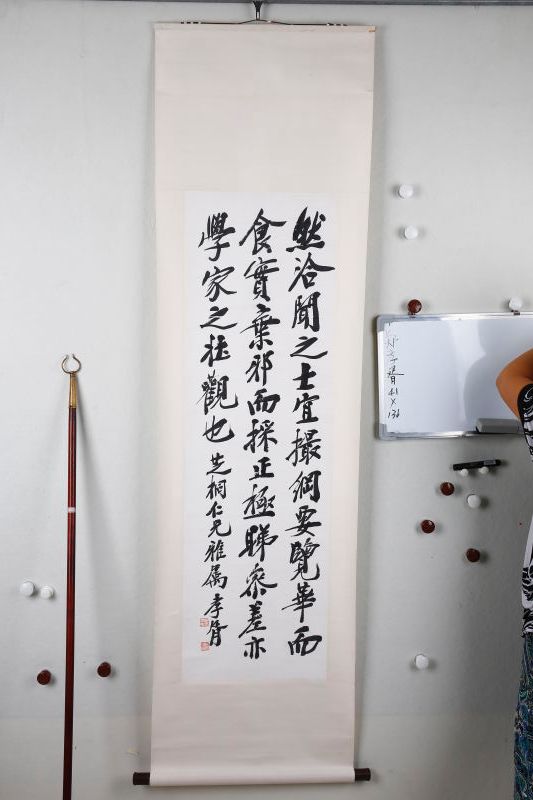 然洽聞之士宜撮綱要覽華而
食實棄邪而採正極睇參差亦
學家之壯觀也 芝桐仁兄雅属 孝胥
郑孝胥 41 X 136